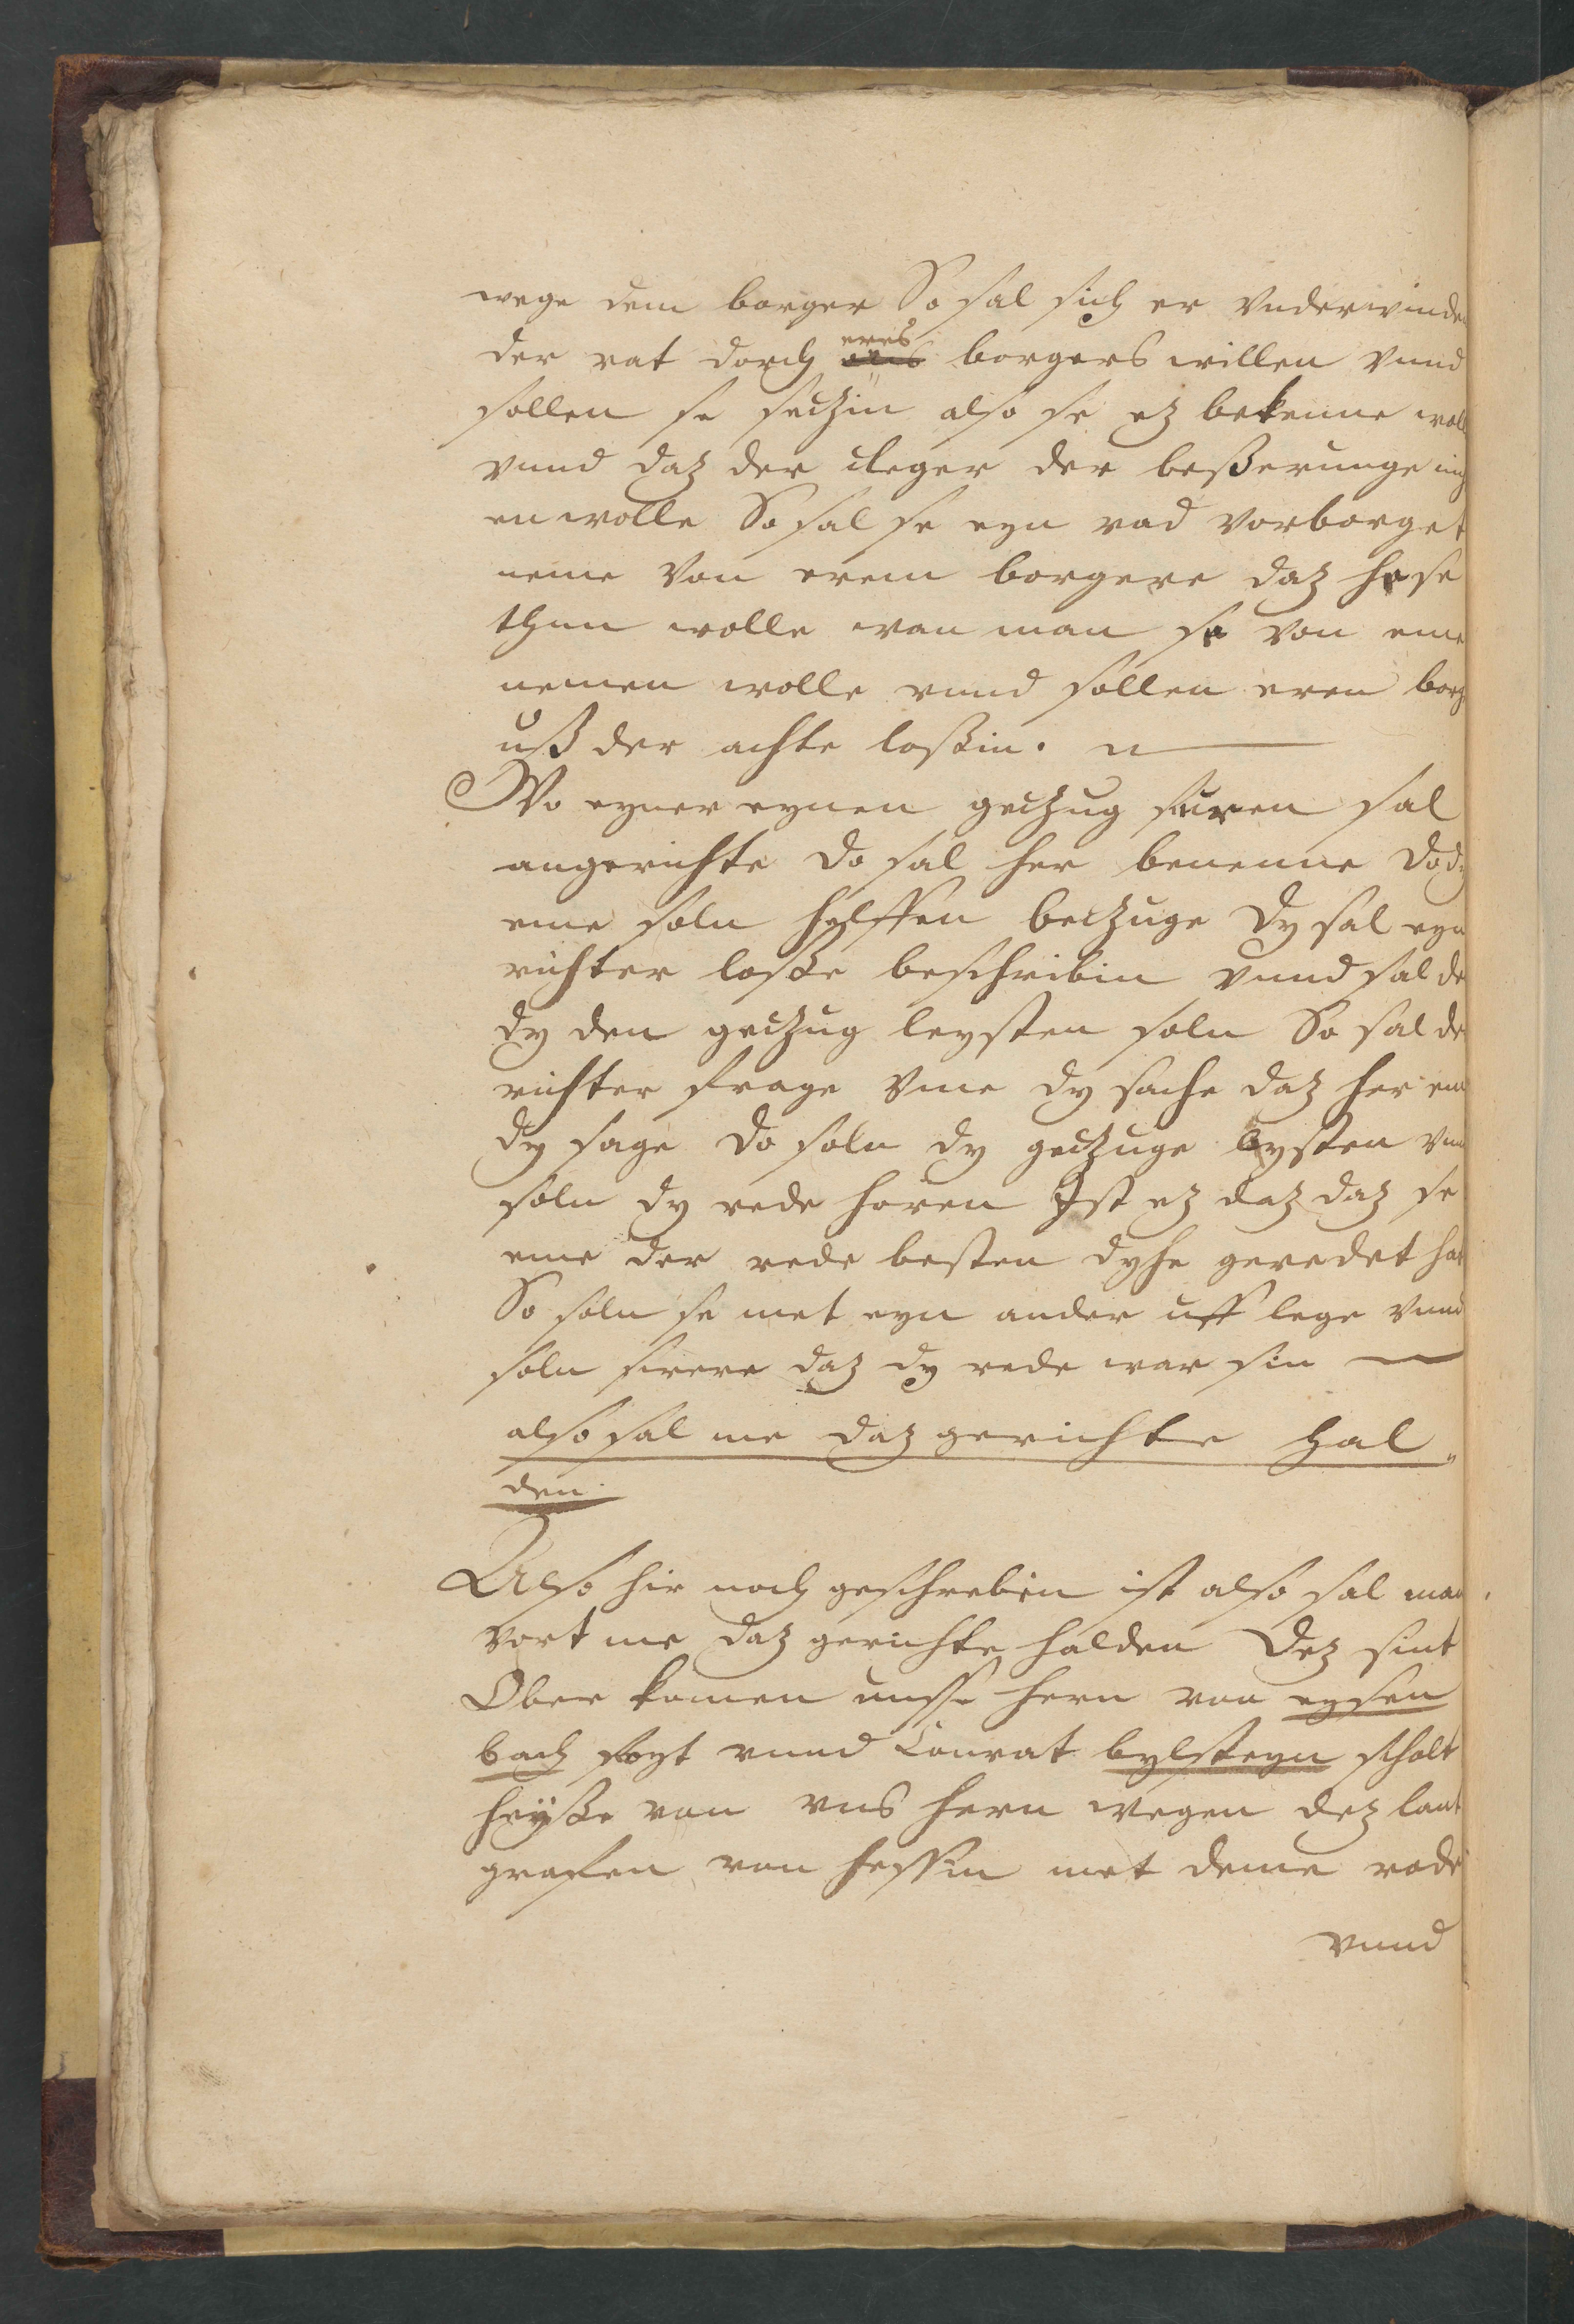 wege dem borger So sal sich er vnderwinden
der rat dorch eres borgers willen vnnd
sollen se seczin also se ez bekenne woll
vnnd daz der cleger der beßerunge
en wolle So sal se eyn rad vorborget
neme von erem borgere daz he se
thun wolle wan man se von eme
nemen wolle vnnd sollen eren borg
uß der achte loßin.
Wo eyner eynen geczug furen sal
angerichte do sal her benenne dody
eme soln hylffen beczuge dy sal eyn
richter loße beschribin vnnd sal de
dy den geczug leysten soln So sal de
richter frage vme dy sache daz her em
dy sage do soln dy geczuge leysten vnn
soln dy rede horen Ist ez daz daz se
eme der rede besten dyhe geredet hat
So soln se met eyn ander uff lege vnnd
soln swere daz dy rede war sin
also sal me daz gerichte hal„
den.
Also hir noch geschrebin ist also sal man
vort me daz gerichte halden Dez sint
Ober komen unsse hern von eysen
bach foyt vnnd Conrat bylsteyn scholt
heyße von vns hern wegen dez lant
grafen von hessin met deme rode
vnnd